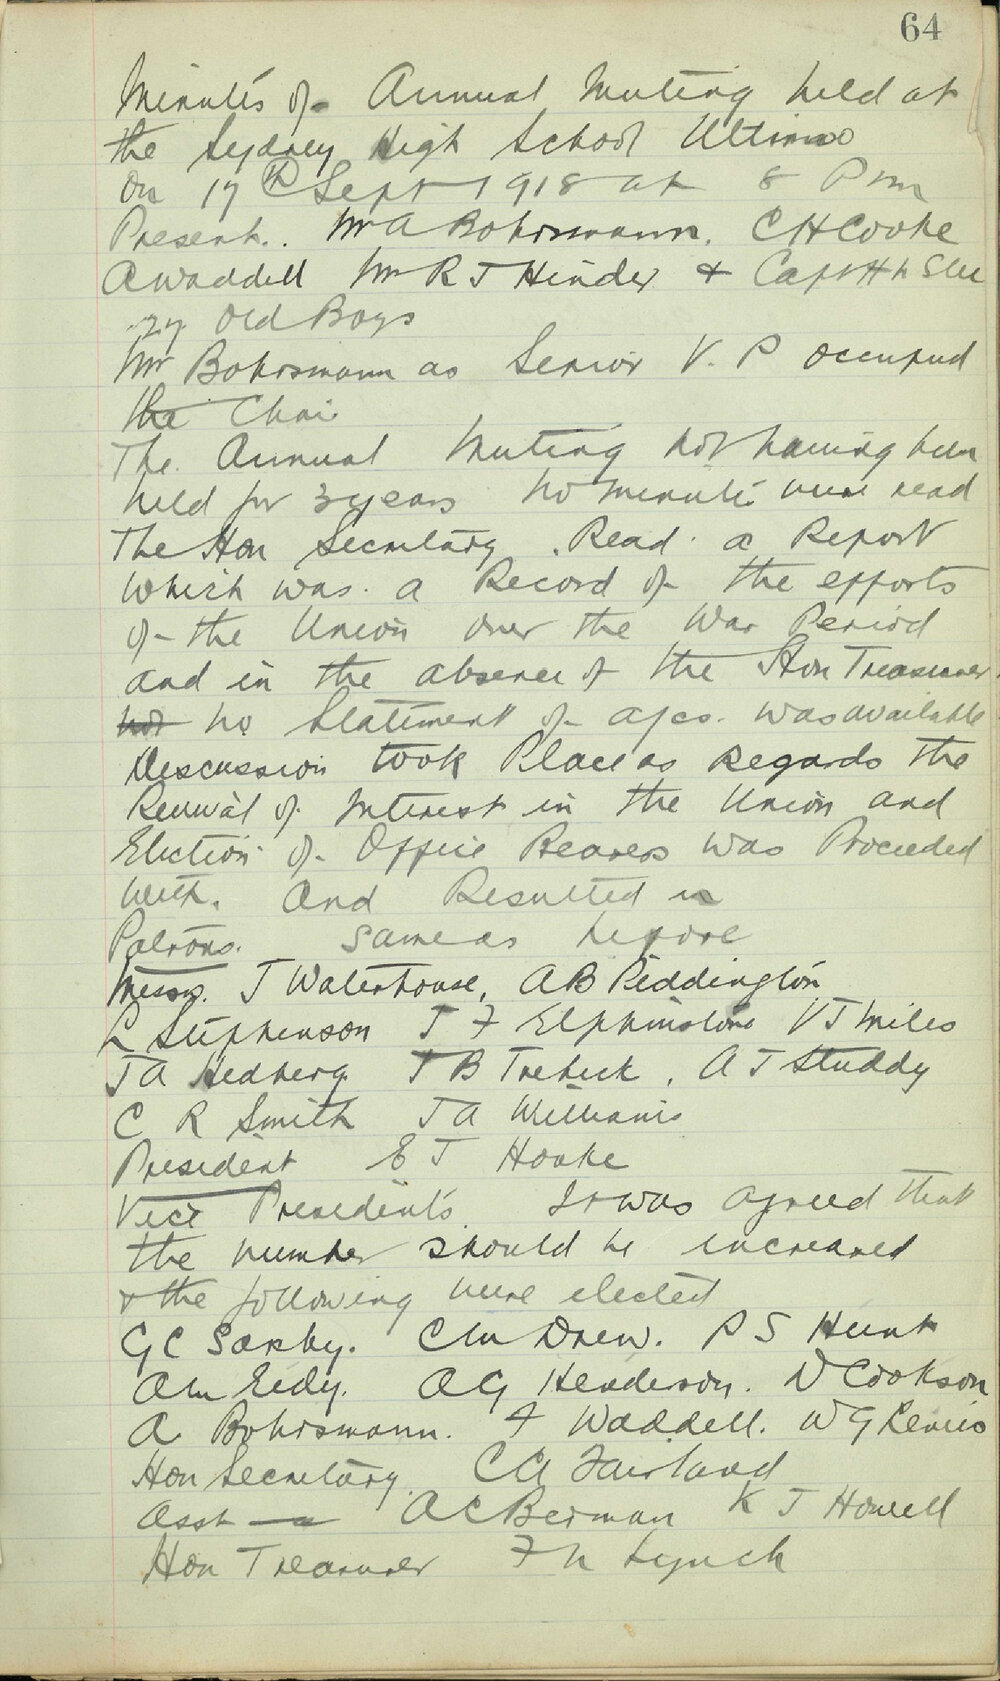 64
Minutes of Annual Meeting held at
the Sydney High School Ultimo
On 17th Sept 1918 at 8 Pm
Present. Mr A Bohrsmann. C H Cooke
A Waddell Mr R J Hinder & Capt H
27 Old Boys
Mr Bohrsmann as Senior V. P occupied
the Chair
The Annual Meeting not having been
held for 3 years no minutes were read
The Hon Secretary Read a Report
which was a Record of the efforts
of the Union over the War Period
and in the absence of the Hon Treasurer
not no Statement of a/cs. was available
Discussion took Place as Regards the
Revival of Interest in the Union and
Election of Office Bearers was Proceeded
with. and Resulted in
Patrons. same as before
Messrs. J Waterhouse, A B Piddington
L Stephenson J F Elphinstone V J Miles
J A Hedberg T B Trebeck, A J Studdy
C R Smith J A Williams
President E J Hooke
Vice Presidents It was agreed that
the number should be increased
& the following were elected
G C Saxby. C M Drew. P S Hunt
A M Eedy. A G Henderson. D Cookson
A Bohrsmann. A Waddell. W G Lewis
Hon Secretary. C A Fairland
Asst — A C Berman K J Howell
Hon Treasurer F N Lynch